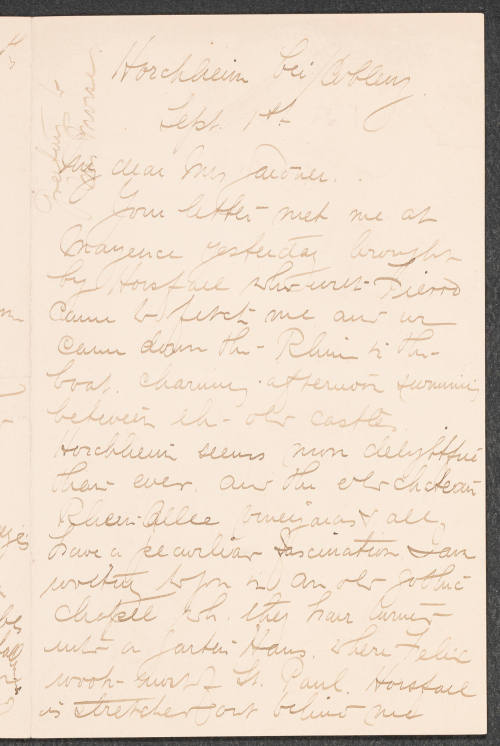 Horchheim bei Coblenz
Sept. 1st
My dear Mrs Gardner.
Your letter met me at
Mayence yesterday brought
by Horsfall who with Pierro
came to fetch me and we
came down the Rhine in the
boat. charming afternoon swimming
between the old castles
Horchheim seems more delightful
than ever. and the old chateau
Rhein Allee vineyards & all,
have a peculiar fascination I am
writing to you in an old gothic
chapel wh. they have turned
into a Garten Haus. where Felix
wrote most of St. Paul. Horsfall
is stretched out behind me
Greeting to
Morse.